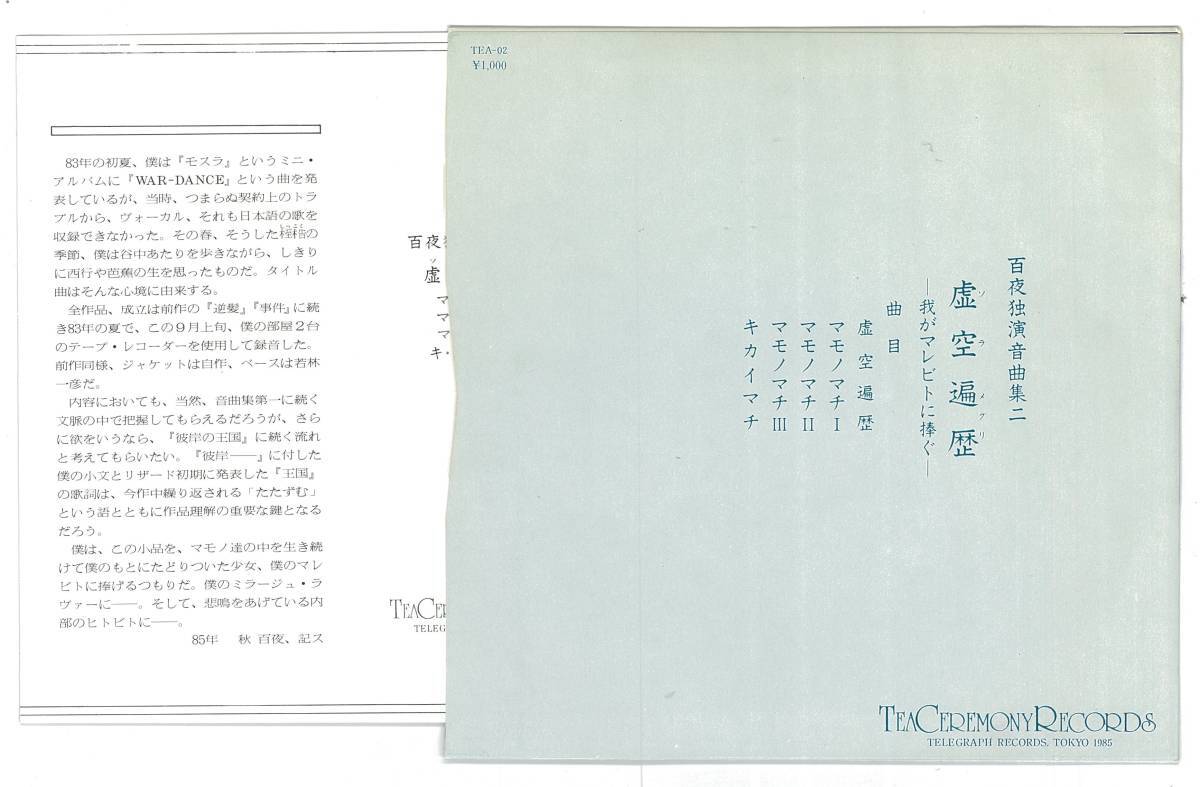 83年の初夏、僕は『モスラ』というミニ・
アルバムに『WAR-DANCE』という曲を発
表しているが、当時、つまらぬ契約上のトラ
ブルから、ヴォーカル、それも日本語の歌を
収録できなかった。その春、そうした桎梏の
季節、僕は谷中あたりを歩きながら、しきり
に西行や芭蕉の生を思ったものだ。タイトル
曲はそんな心境に由来する。
全作品、成立は前作の『逆髪』『事件』に続
き83年の夏で、この9月上旬、僕の部屋2台
のテープ・レコーダーを使用して録音した。
前作同様、ジャケットは自作、ベースは若林
一彦だ。
内容においても、当然、音曲集第一に続く
文脈の中で把握してもらえるだろうが、さら
に欲をいうなら、『彼岸の王国』に続く流れ
と考えてもらいたい。『彼岸——』に付した
僕の小文とリザード初期に発表した『王国』
の歌詞は、今作中繰り返される「たたずむ」
という語とともに作品理解の重要な鍵となる
だろう。
僕は、この小品を、マモノ達の中を生き続
けて僕のもとにたどりついた少女、僕のマレ
ビトに捧げるつもりだ。僕のミラージュ・ラ
ヴァーに——。そして、悲鳴をあげている内
部のヒトビトに——。
85年 秋 百夜、記ス
百夜
虚
マ
マ
マ
キ
TEACER
TELEG
TEA-02
¥1,000
百夜独演音曲集二
虚空遍歴
ソラメグリ
—我がマレビトに捧ぐ—
曲目
虚空遍歴
マモノマチ I
マモノマチ II
マモノマチ III
キカイマチ
TEACEREMONYRECORDS
TELEGRAPH RECORDS. TOKYO 1985